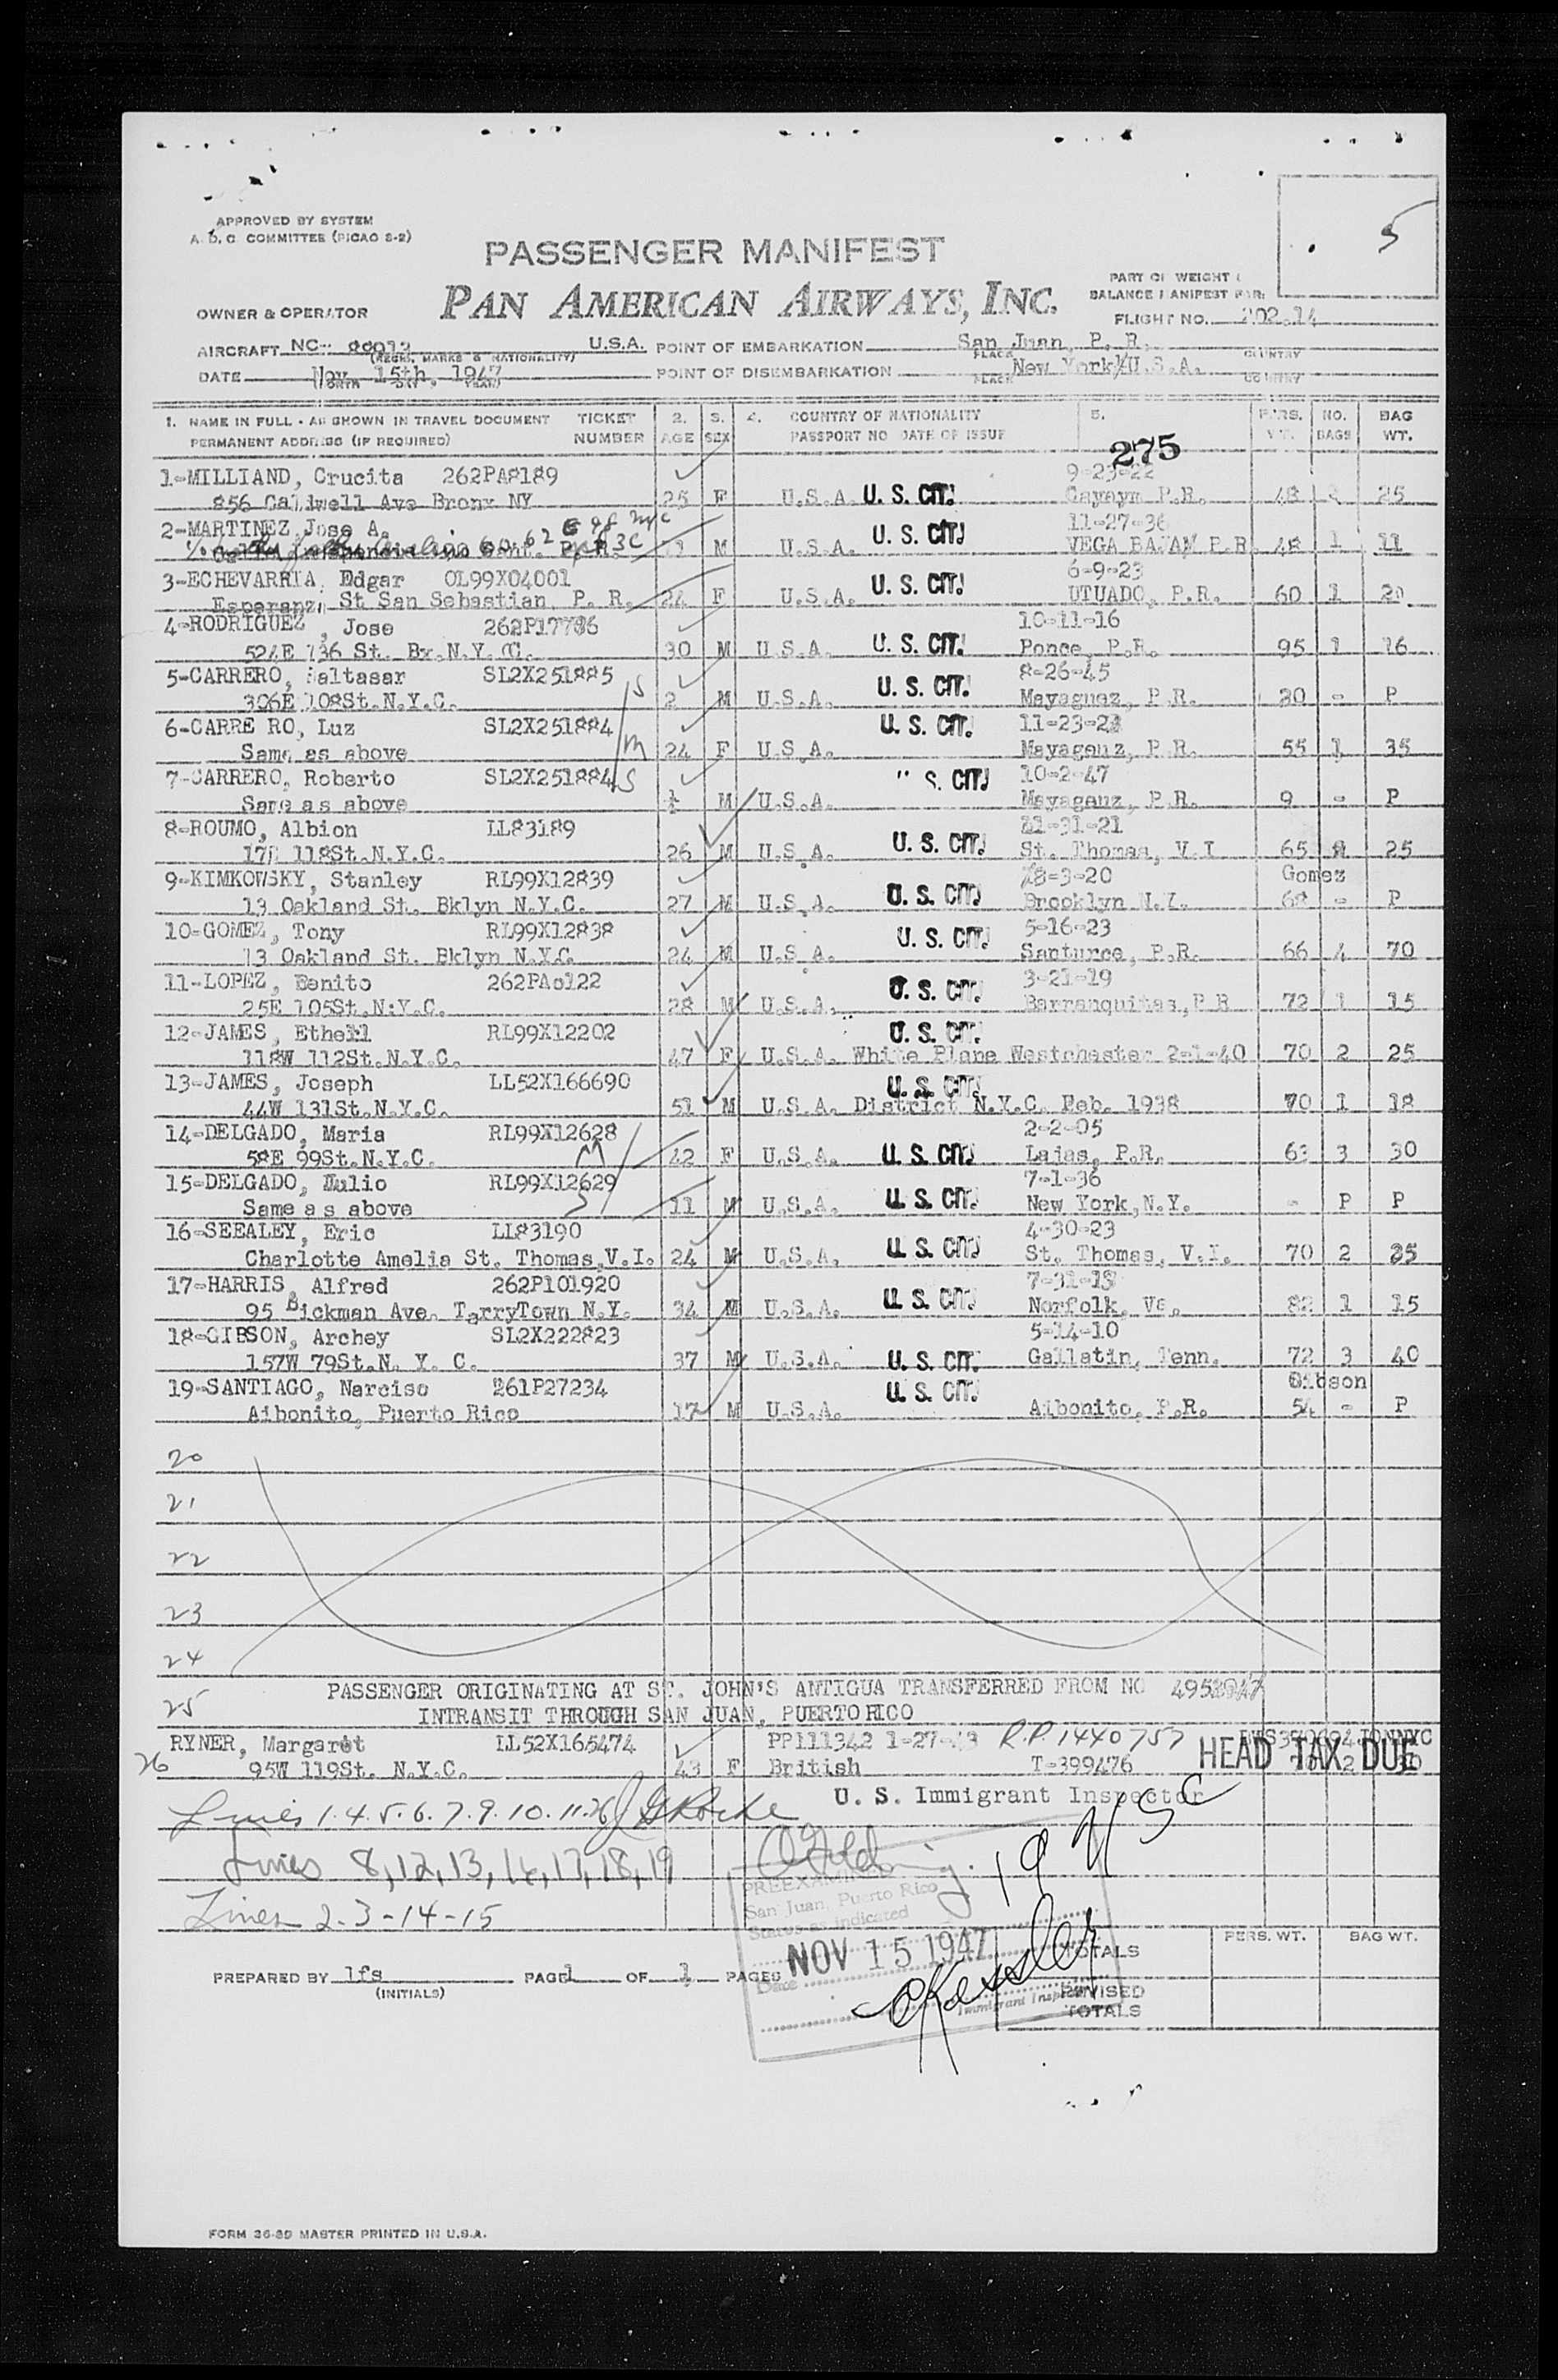 5
APPROVED BY SYSTEM
A. D. C. COMMITTEE (PICAO S-2)
PASSENGER MANIFEST
PART OF WEIGHT &
BALANCE MANIFEST FOR:
OWNER & OPERATOR PAN AMERICAN AIRWAYS, INC.
FLIGHT NO. 202-14
AIRCRAFT NC- U.S.A. POINT OF EMBARKATION San Juan, P. R.
(REGN. MARKS & NATIONALITY) PLACE COUNTRY
DATE Nov 15th, 1947 POINT OF DISEMBARKATION New York U.S.A.
MONTH DAY YEAR PLACE COUNTRY
1. NAME IN FULL - AS SHOWN IN TRAVEL DOCUMENT TICKET 2. 3. 4. COUNTRY OF NATIONALITY 5. PERS. NO. BAG
PERMANENT ADDRESS (IF REQUIRED) NUMBER AGE SEX PASSPORT NO DATE OF ISSUE WT. BAGS WT.
275
1-MILLIAND, Crucita 262PA8189 9-23-22
856 Caldwell Ave Bronx NY 25 F U.S.A. U. S. CIT. P.R. 48 25
2-MARTINEZ Jose A. 11-27-36
M U.S.A. U. S. CIT. VEGA P.R. 48 1 11
3-ECHEVARRIA, Edgar OL99X04001 6-9-23
Esperanza St San Sebastian, P. R. 24 F U.S.A. U. S. CIT. UTUADO, P.R. 60 1 20
4-RODRIGUEZ, Jose 10-11-16
524E 136 St. Bx.N.Y. 30 M U.S.A. U. S. CIT. Ponce, P.R. 95 1 16
5-CARRERO, Baltasar SL2X251885 S 8-26-45
306E 108St.N.Y.C. 2 M U.S.A. U. S. CIT. Mayaguez, P.R. 30 - P
6-CARRE RO, Luz SL2X251884 11-23-23
Same as above m 24 F U.S.A. U. S. CIT. Mayaguez, P.R. 55 1 35
7-CARRERO, Roberto SL2X251884 S 10-2-47
Same as above M U.S.A. S. CIT. Mayaguez, P.R. 9 - P
8-ROUMO, Albion LL83189 -31-21
118St.N.Y.C. 26 M U.S.A. U. S. CIT. St. Thomas, V.I 65 25
9-KIMKOWSKY, Stanley RL99X12839 8-3-20 Gomez
13 Oakland St. Bklyn N.Y.C. 27 M U.S.A. U. S. CIT. Brooklyn N.Y. 68 - P
10-GOMEZ, Tony RL99X12838 5-16-23
13 Oakland St. Bklyn N.Y.C. 24 M U.S.A. U. S. CIT. Santurce, P.R. 66 4 70
11-LOPEZ, Benito 3-21-19
25E 105St.N.Y.C. 28 M U.S.A. U. S. CIT. Barranquitas, P.R 72 1 15
12-JAMES, Ethell RL99X12202 U. S. CIT.
118W 112St.N.Y.C. 47 F U.S.A. White Plane Westchester 2-1-40 70 2 25
13-JAMES, Joseph LL52X166690 U. S. CIT.
44W 131St.N.Y.C. 51 M U.S.A. District N.Y.C. Feb. 1938 70 1 18
14-DELGADO, Maria RL99X12628 2-2-05
58E 99St.N.Y.C. M 42 F U.S.A. U. S. CIT. Lajas, P.R. 63 3 30
15-DELGADO, Julio RL99X12629 7-1-36
Same as above S 11 M U.S.A. U. S. CIT. New York, N.Y. - P P
16-SEEALEY, Eric LL83190 4-30-23
Charlotte Amelia St. Thomas, V.I. 24 M U.S.A. U. S. CIT. St. Thomas, V.I. 70 2 35
17-HARRIS, Alfred 262P101920 7-31-13
95 Bickman Ave. TarryTown N.Y. 34 M U.S.A. U. S. CIT. Norfolk, Va. 82 1 15
18-GIBSON, Archey SL2X222823 5-14-10
157W 79St.N. Y. C. 37 M U.S.A. U. S. CIT. Gallatin, Tenn. 72 3 40
19-SANTIAGO, Narciso 261P27234 U. S. CIT. Gibson
Aibonito, Puerto Rico 17 M U.S.A. Aibonito, P.R. 54 - P
20
21
22
23
24
25 PASSENGER ORIGINATING AT ST. JOHN'S ANTIGUA TRANSFERRED FROM NC
INTRANSIT THROUGH SAN JUAN, PUERTO RICO
RYNER, Margaret LL52X165474 PP111342 1-27-43 R.P. 1440757
26 95W 119St. N.Y.C. 43 F British T-399476 HEAD TAX DUE
U. S. Immigrant Inspector
Lines 1.4.5.6.7.9.10.11.26
Lines 8,12,13,16,17,18,19
19 USC
Lines 2-3-14-15
PREEXAMINED
San Juan, Puerto Rico
Status as indicated
NOV 15 1947
Date
Immigrant Inspector
PREPARED BY lfs PAGE 1 OF 1 PAGES
(INITIALS)
PERS. WT. BAG WT.
TOTALS
REVISED
TOTALS
FORM 36-89 MASTER PRINTED IN U.S.A.